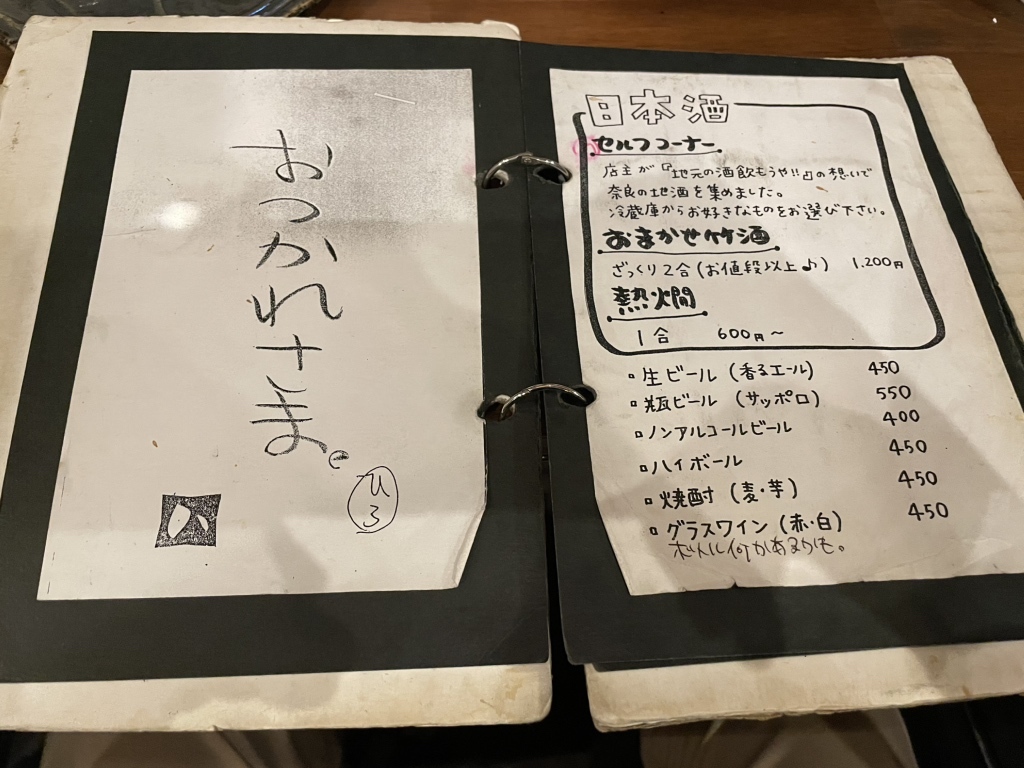 おつかれさま。
ひろ
か
日本酒
セルフコーナー
店主が『地元の酒飲もうや!!』の想いで
奈良の地酒を集めました。
冷蔵庫からお好きなものをお選び下さい。
おまかせ竹酒
ざっくり2合(お値段以上♪) 1.200円
熱燗
1合 600円~
▫生ビール (香るエール) 450
▫瓶ビール (サッポロ) 550
▫ノンアルコールビール 400
▫ハイボール 450
▫焼酎 (麦・芋) 450
▫グラスワイン (赤・白) 450
ボトル何かあるかも。